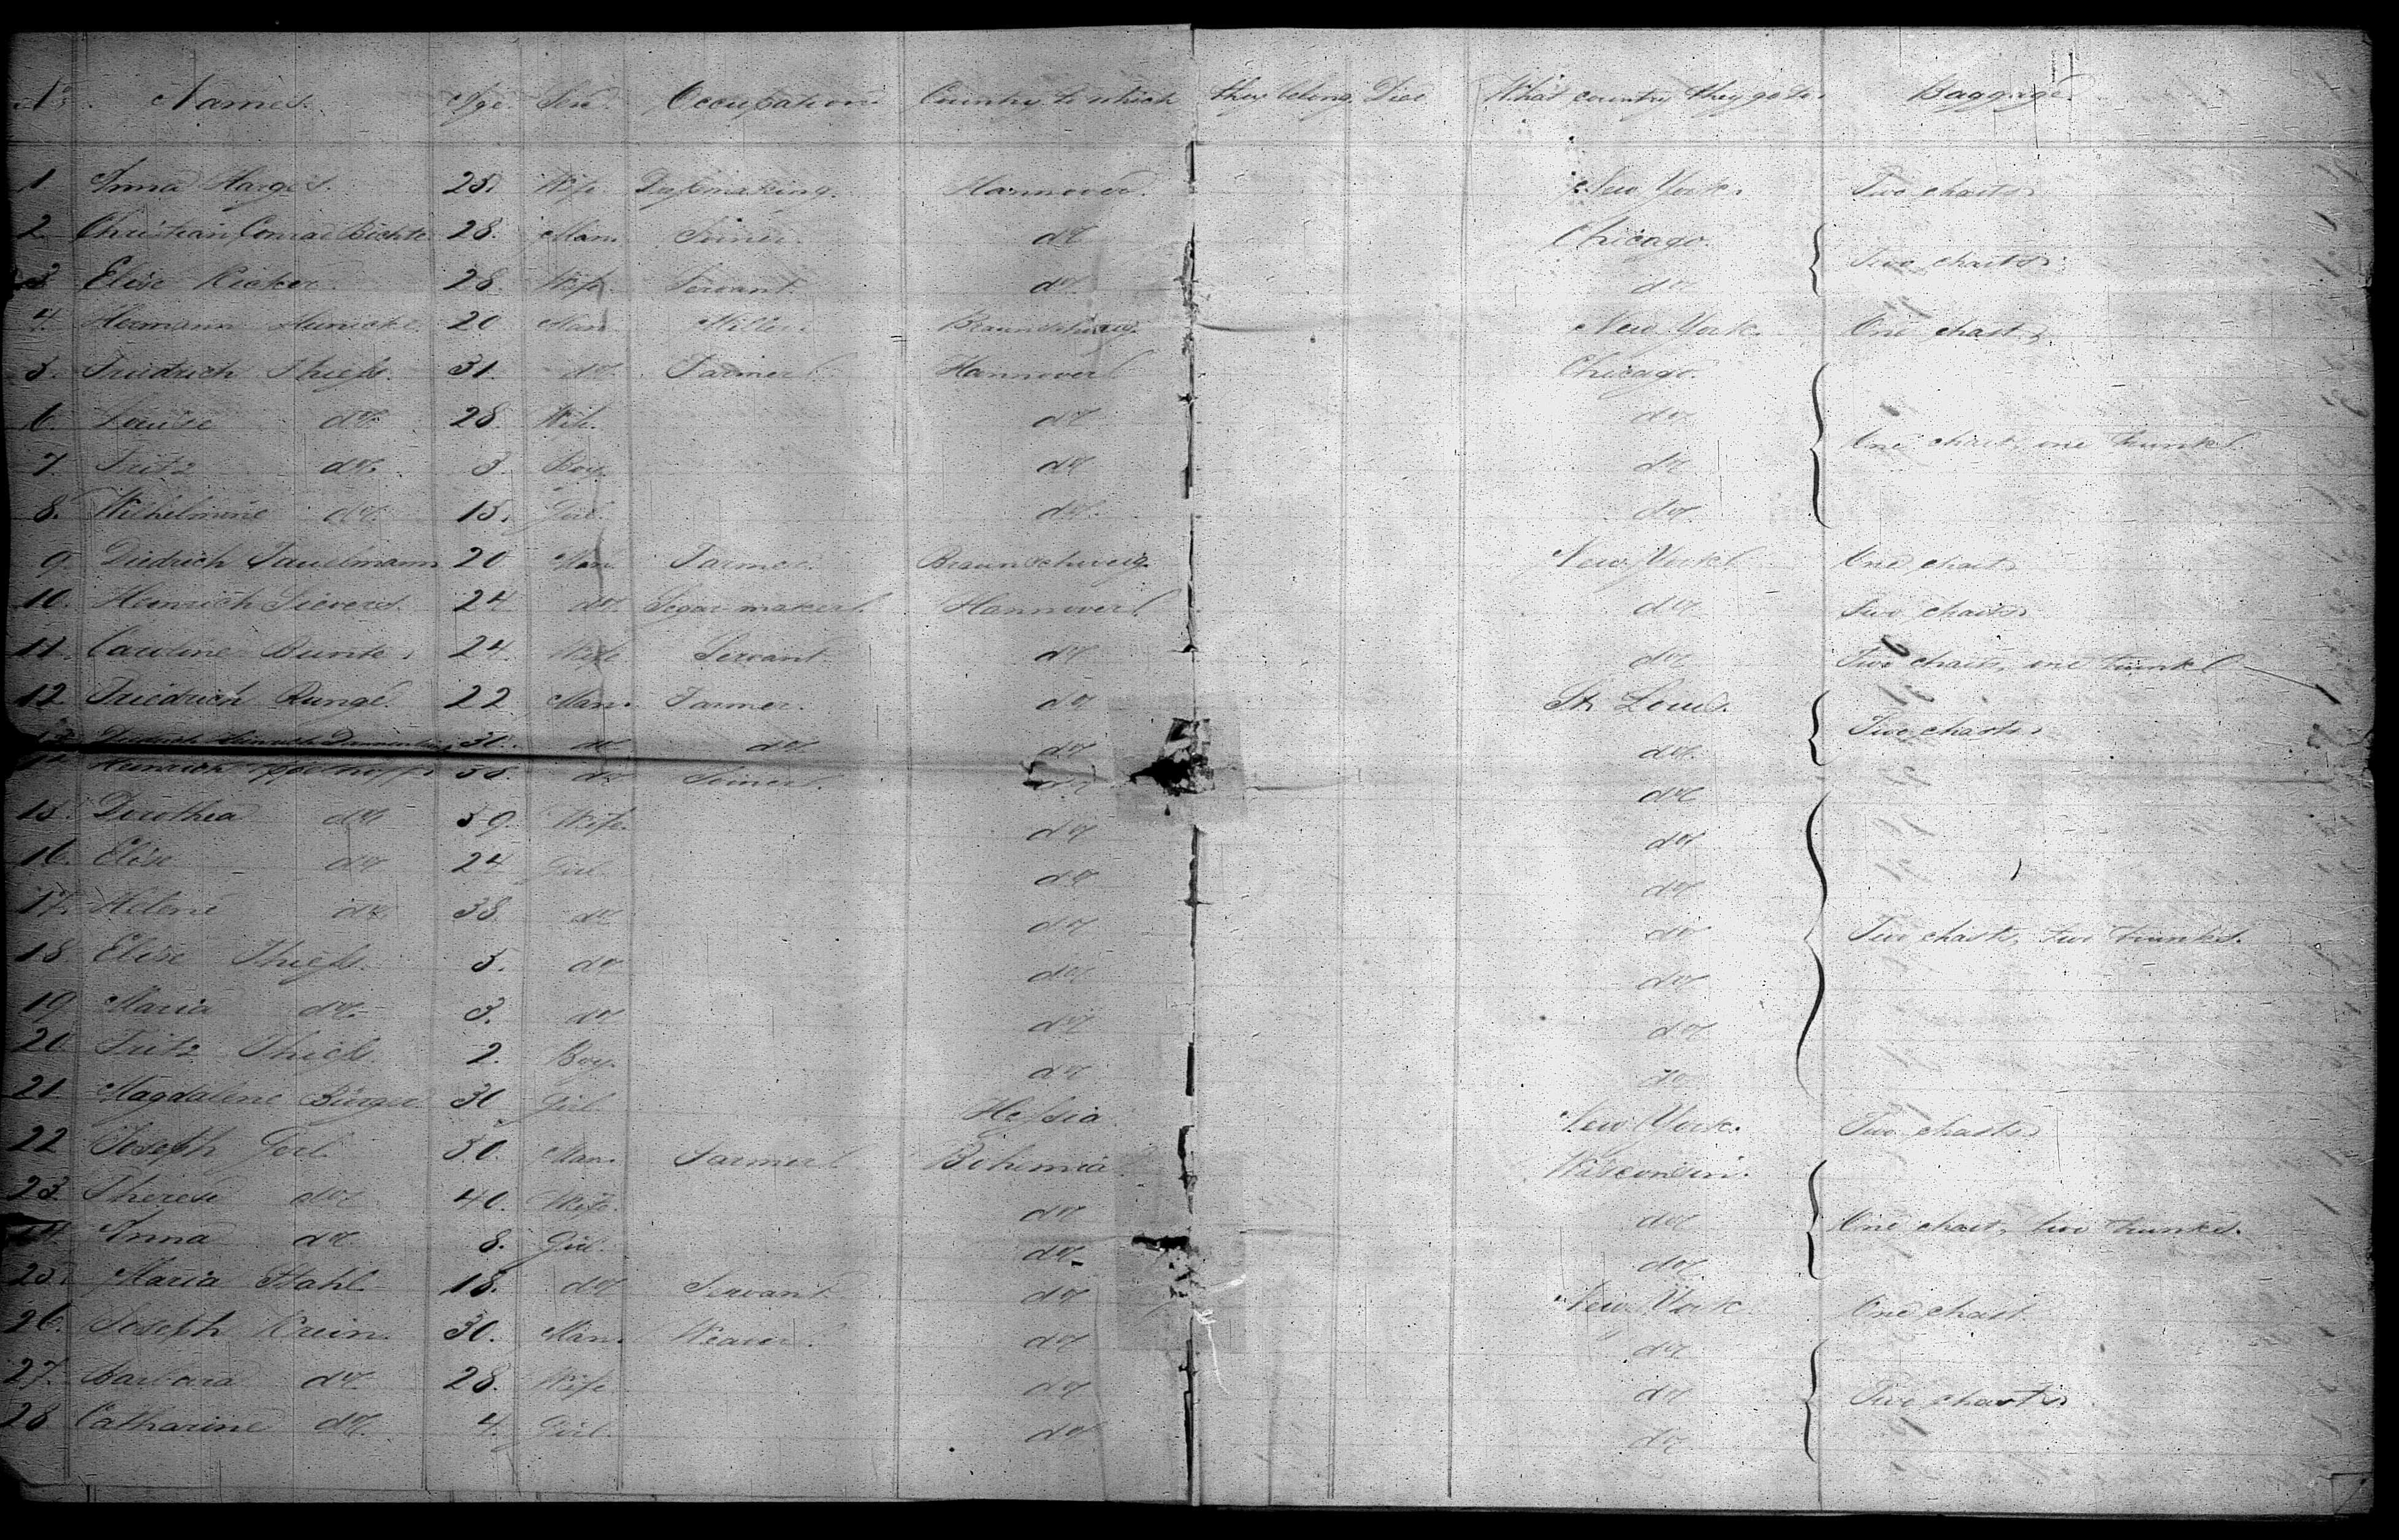 No. Names. Age. Sex. Occupation Country to which they belong. Died What country they go to. Baggage.
1 Anna Harges. 25. Wife. Dressmaking. Hannover. New York. Two chasts
2. Christian Conrad 28. Man. Joiner. do Chicago. Two chasts
3. Elise 28. Wife. Servant. do do
4. Hermann Heinicke. 20 Man Miller. Braunschweig. New York. One chast
5. Friedrich Thiess. 31. do Farmer. Hannover Chicago.
6. Louise do 28. Wife. do do One chast, one trunk
7. Fritz do 3. Boy. do do
8. Wilhelmine do 15. Girl. do do
9. Diedrich 20 Man. Farmer. Braunschweig. New York One chast
10. Heinrich Sievers. 24 do Segar maker Hannover do Two chasts
11. Caroline Bunte. 24. Wife Servant. do do Two chasts, one trunk
12. Friedrich Runge. 22 Man. Farmer. do St. Louis. Two chasts
13. Diedrich Heinrich 30. do do do do
14. Heinrich 58. do Joiner. do do
15. Dorothea do 59. Wife. do do
16. Elise do 24 Girl do do
17. Helene do 38. do do do Two chasts, two trunks.
18 Elise Thiess. 5. do do do
19 Maria do 3. do do do
20. Fritz Thiess 2. Boy. do do
21. Magdalene Bürger. 30 Girl Hessia New York. Two chasts
22 Joseph Gerl. 50. Man. Farmer Bohemia Wisconsin.
23. Therese do 40. Wife. do do One chast, two trunks.
24. Anna do 8. Girl. do do
25. Maria Stahl. 18. do Servant. do New York. One chast.
26. Joseph 30. Man. Weaver. do do
27. Barbara do 28. Wife do do Two chasts
28 Catharine do 4. Girl. do do